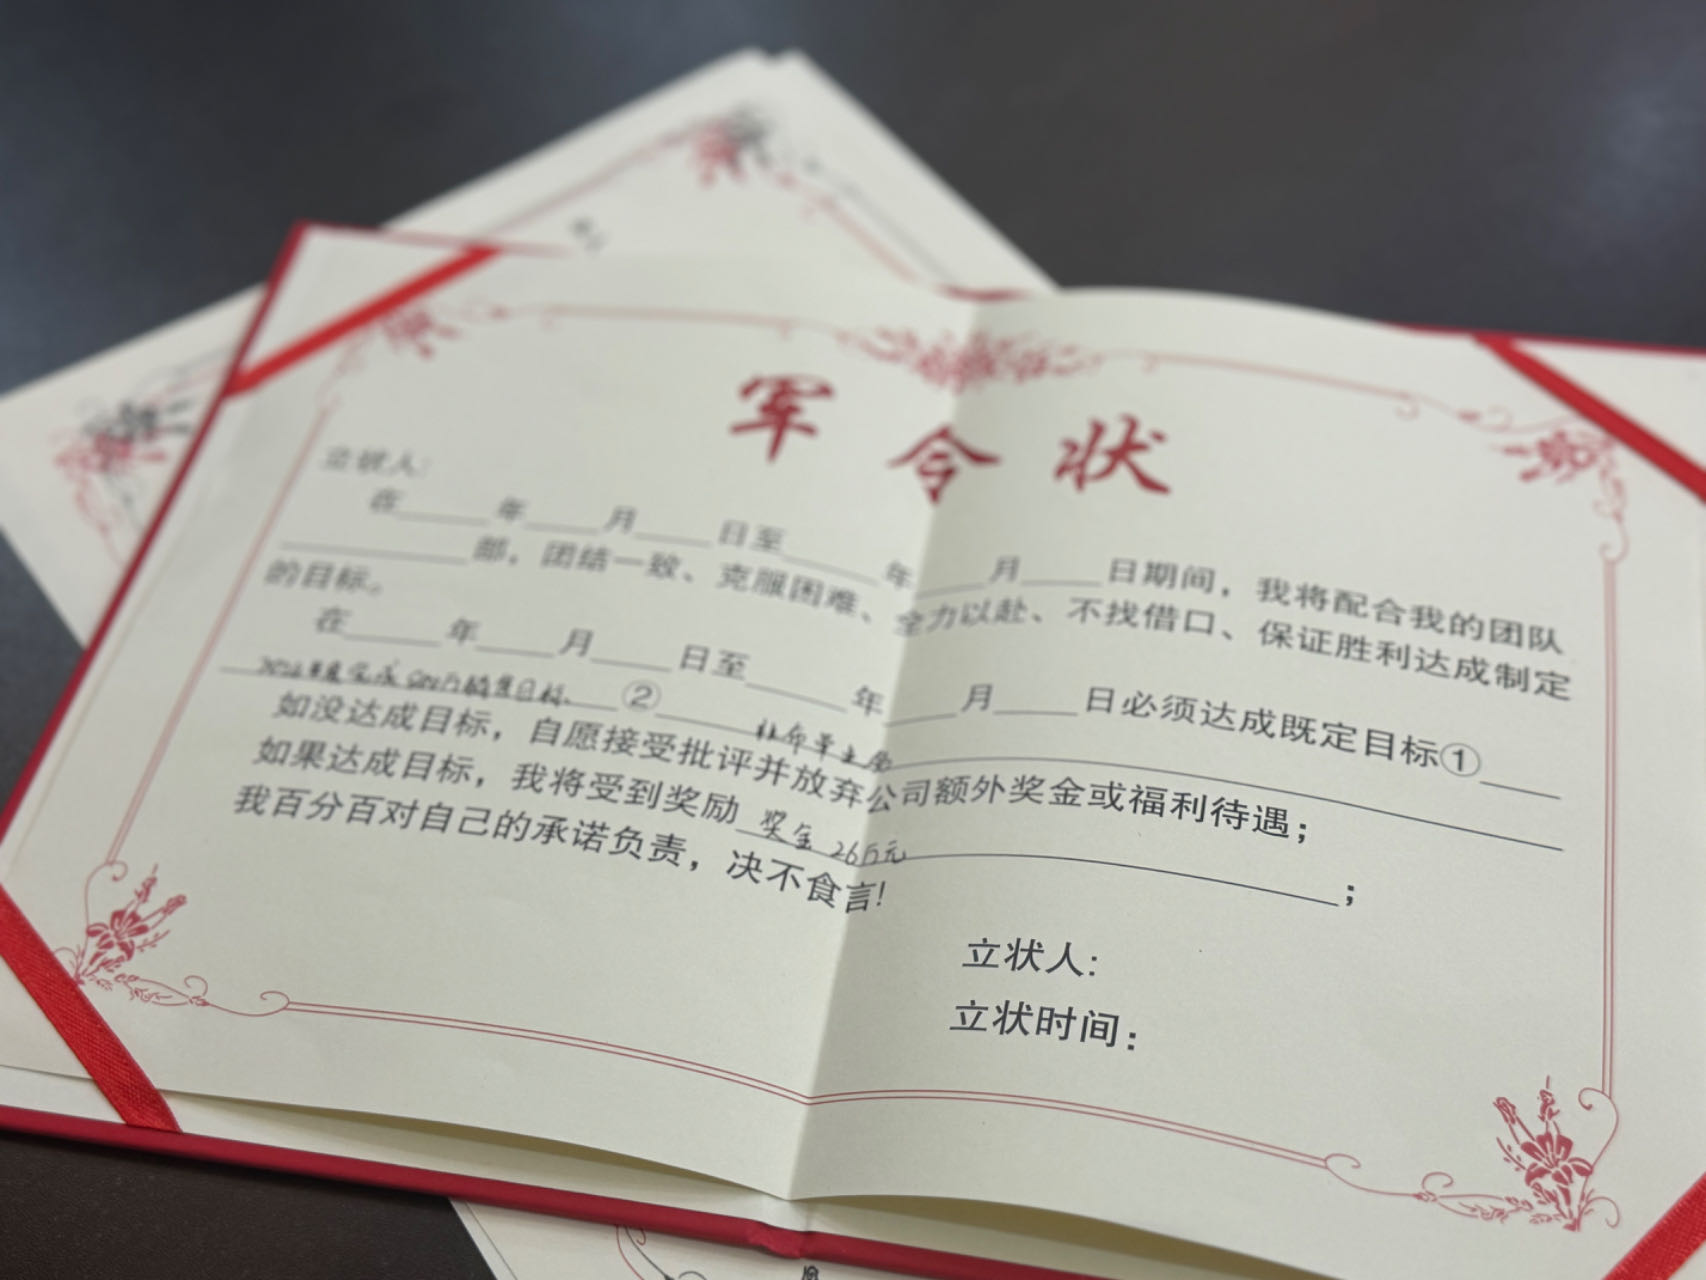 军令状
立状人:
在_____年____月____日至_____年____月____日期间，我将配合我的团队
__________部，团结一致、克服困难、全力以赴、不找借口、保证胜利达成制定
的目标。
在_____年____月____日至_____年____月____日必须达成既定目标①____
年度完成500万销售目标、②
如没达成目标，自愿接受批评并放弃公司额外奖金或福利待遇；
如果达成目标，我将受到奖励 奖金 26万元；
我百分百对自己的承诺负责，决不食言！
立状人:
立状时间：